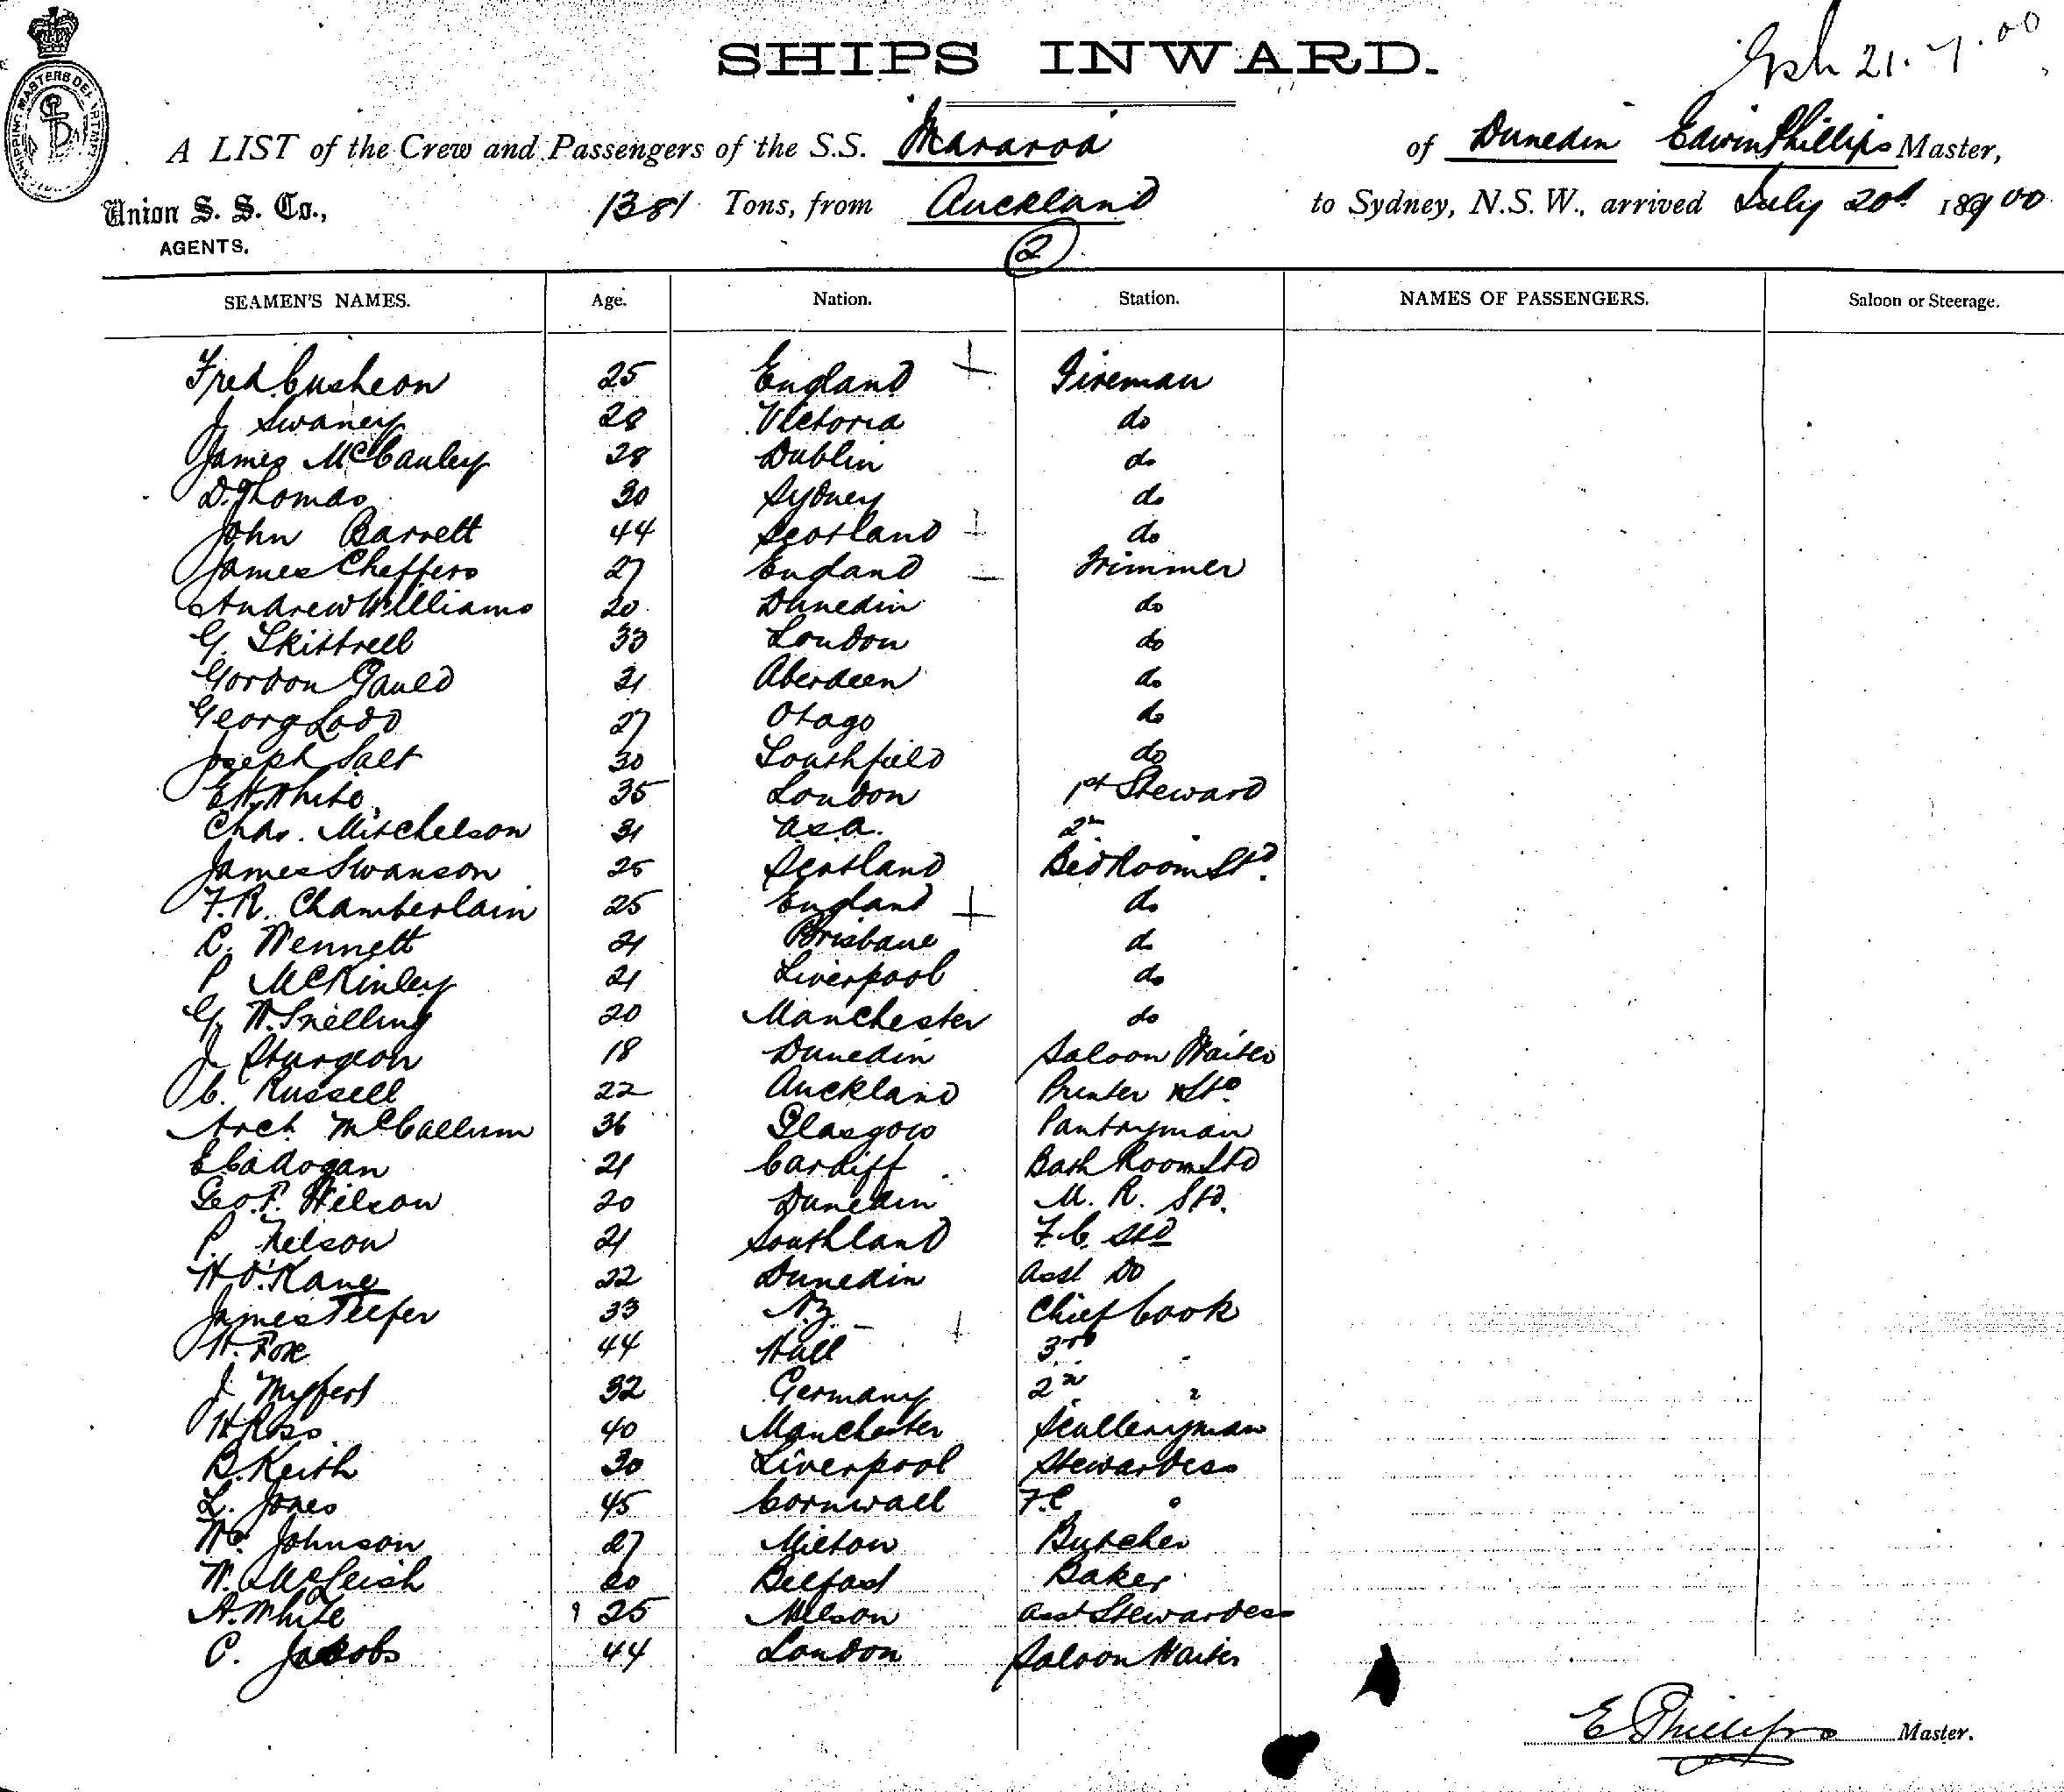 SHIPPING MASTERS DEPARTMENT
21.7.00
SHIPS INWARD.
A LIST of the Crew and Passengers of the S.S. Mararoa of Dunedin Edwin Phillips Master,
Union S. S. Co., 1381 Tons, from Auckland to Sydney, N.S.W., arrived July 20th 1900
AGENTS.
2
SEAMEN'S NAMES. Age. Nation. Station. NAMES OF PASSENGERS. Saloon or Steerage.
Fred Cusheon 25 England + Fireman
J Swaney 28 Victoria do
James McCauley 28 Dublin do
D. Thomas 30 Sydney do
John Barrett 44 Scotland + do
James Cheffers 27 England — Trimmer
Andrew Williams 20 Dunedin do
G. Skittrell 33 London do
Gordon Gauld 31 Aberdeen do
Georg Ladd 27 Otago do
Joseph Salt 30 Southfield do
E H White 35 London 1st Steward
Chas. Mitchelson 31 2nd "
James Swanson 25 Scotland Bed Room Std.
F. R. Chamberlain 25 England + do
C. Wennett 21 Brisbane do
P McKinley 21 Liverpool do
G. W. Snelling 20 Manchester do
J Sturgeon 18 Dunedin Saloon Waiter
C. Russell 22 Auckland Printer & Std
Arch McCallum 36 Glasgow Pantryman
E Cadogan 21 Cardiff Bath Room Std
Geo. P. Wilson 20 Dunedin M. R. Std.
P. Nelson 21 Southland F. C. Std
H O'Kane 22 Dunedin Asst Do
James Peefer 33 N.Z. Chief Cook
H. Fox 44 Hull + 3rd "
J 32 Germany 2nd "
H Ross 40 Manchester Sculleryman
B. Keith 30 Liverpool Stewardess
L. Jones 45 Cornwall F.C "
Wm Johnson 27 Milton Butcher
W. McLeish 20 Belfast Baker
A. White 25 Nelson Asst Stewardess
C. Jacobs 44 London Saloon Waiter
E Phillips Master.